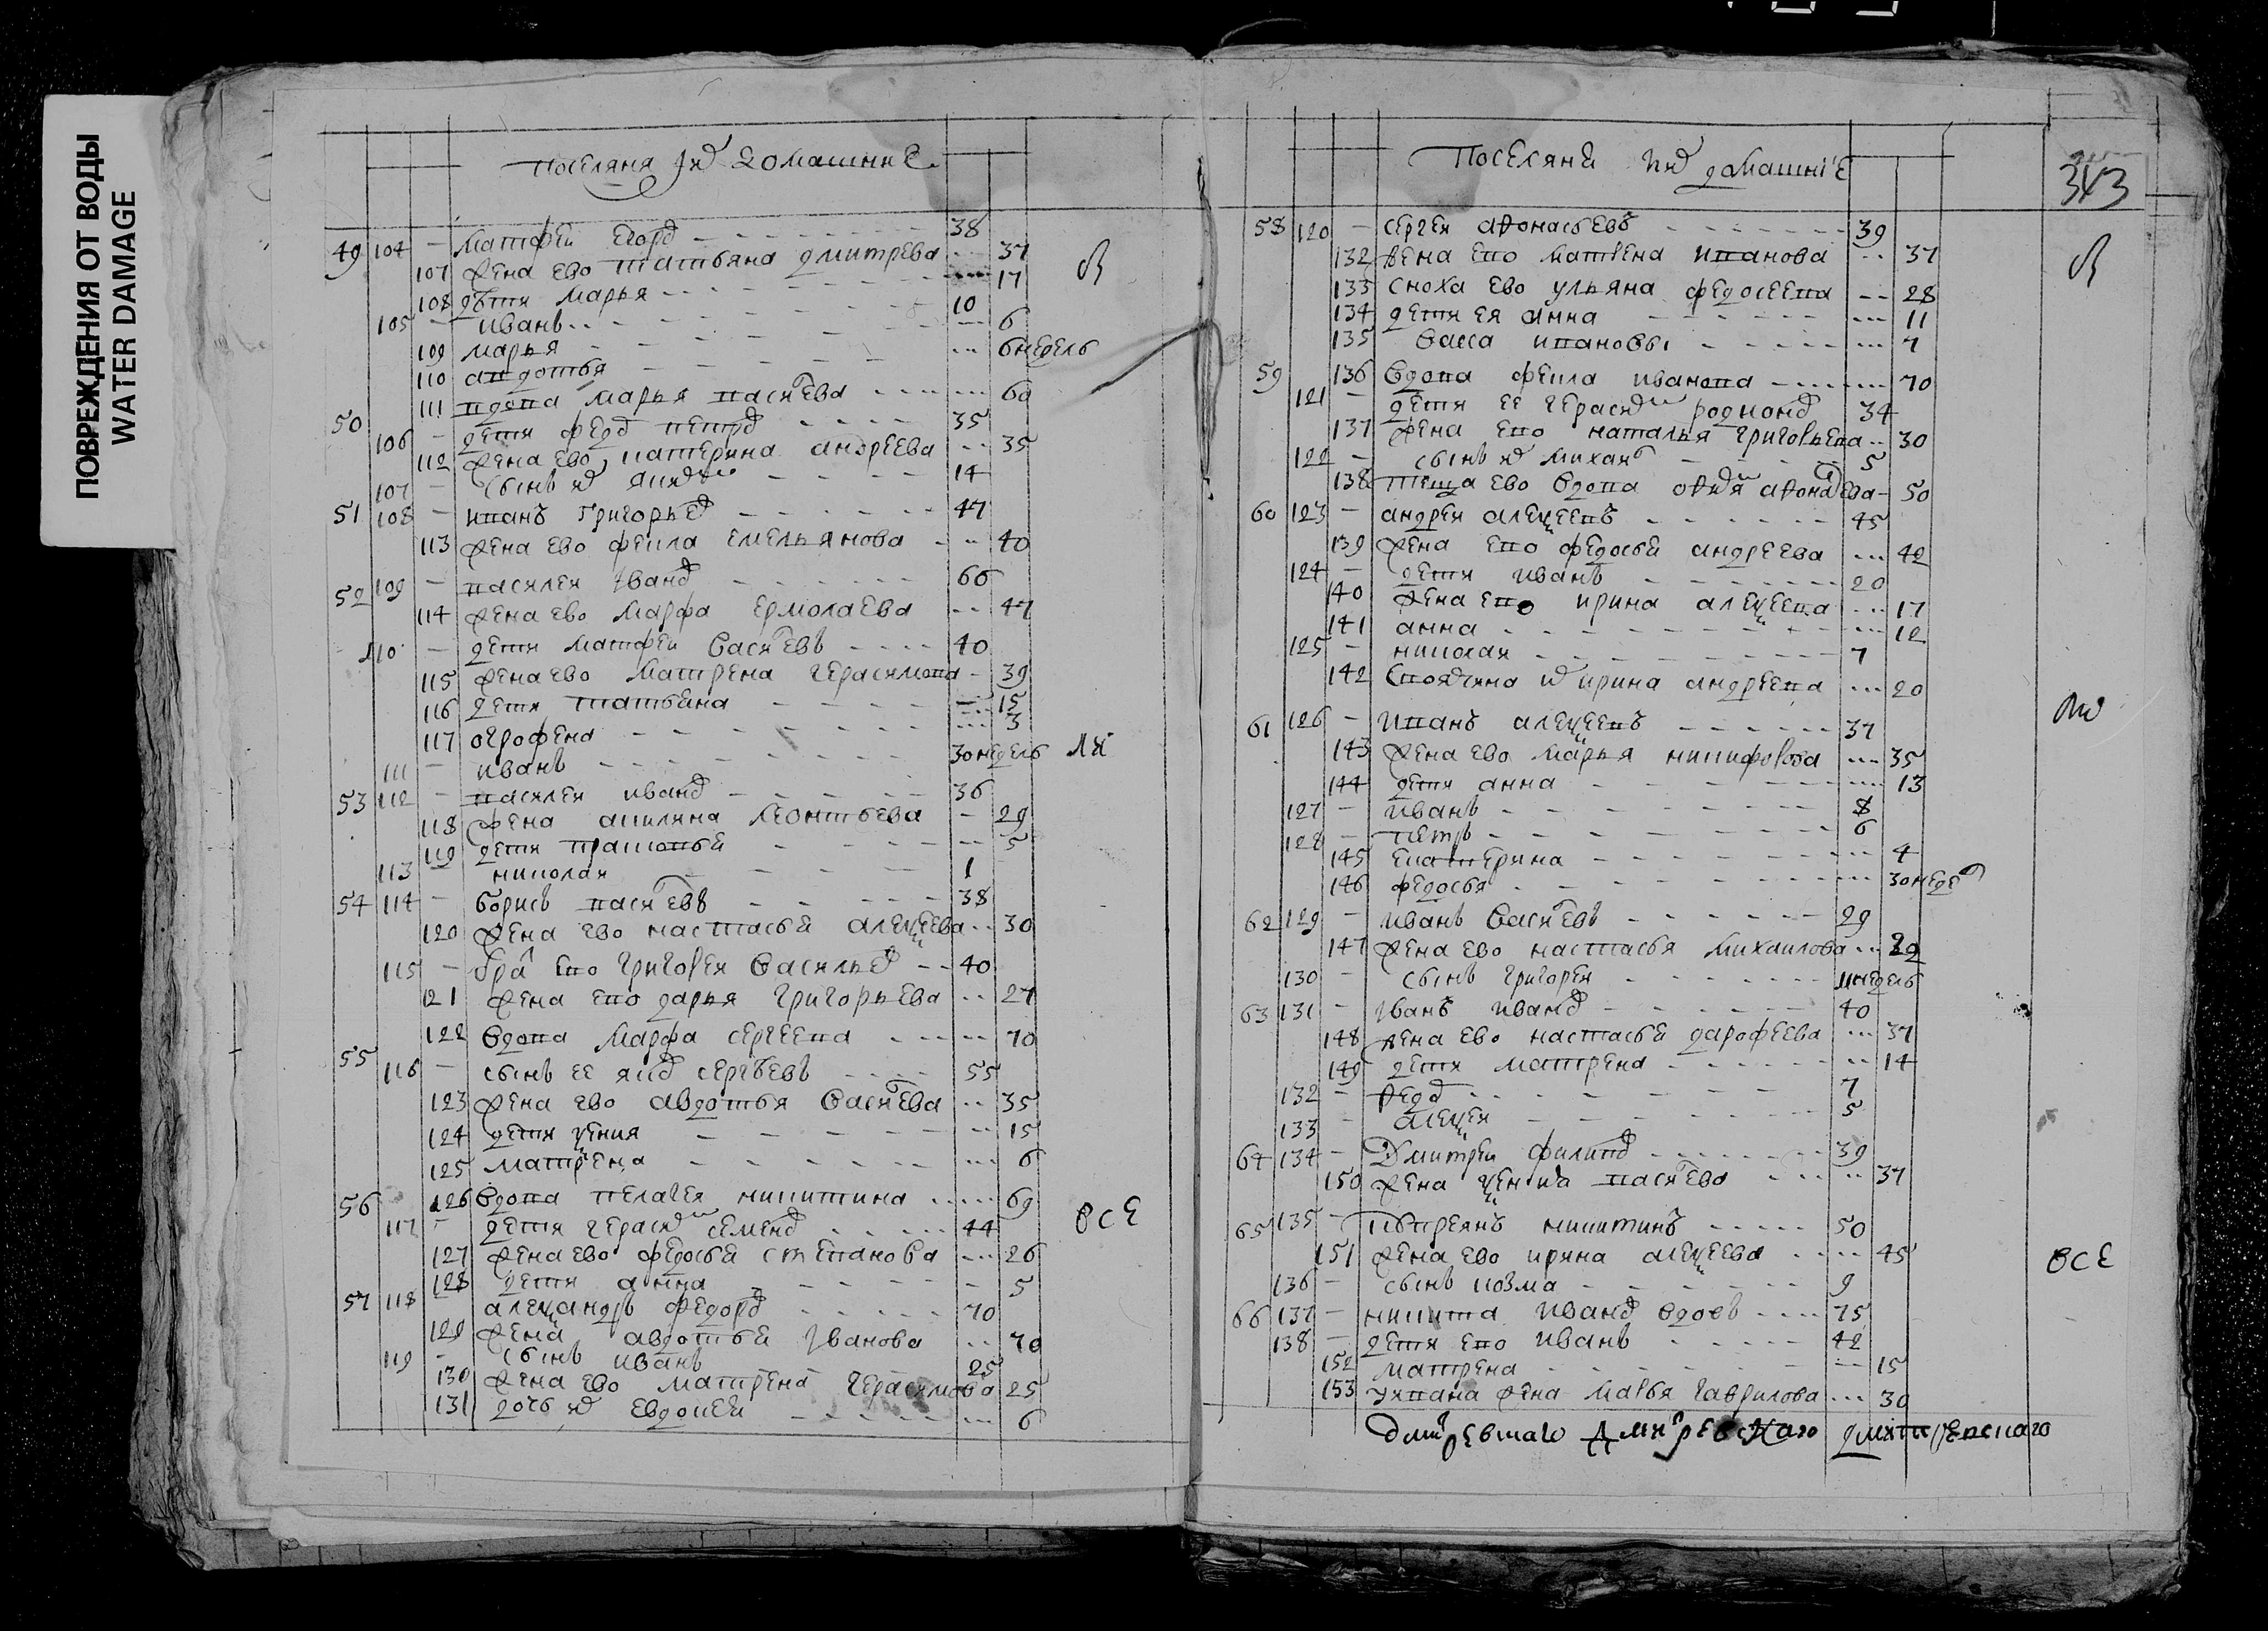 ПОВРЕЖДЕНИЯ ОТ ВОДЫ
WATER DAMAGE
поселяня и домашние
49 104 — Матфеи Егоро 38
107 жена ево татьяна дмитрева 37
108 дѣти марья 17
105 — иванъ 10
109 марья 6
110 авдотья 6 недель
111 вдова марья васиева 60
50 106 — дети федо петро 35
112 жена ево катерина андреева 35
107 — сынъ 14
51 108 — иванъ григорье 47
113 жена ево фекла емельянова 40
52 109 — василеи ивано 66
114 жена ево марфа ермолаева 47
110 — дети матфеи васиевъ 40
115 жена ево матрена герасимова 39
116 дети татьяна 15
117 огрофена 3
111 — иванъ 30 недель
53 112 — василеи ивано 36
118 жена акилина леонтьева 29
119 дети прасковьи 5
113 николаи 1
54 114 — борисъ васиевъ 38
120 жена ево настасьи алексеева 30
115 — бра ево григореи василье 40
121 жена ево дарья григорьева 27
122 вдова марфа сергеева 70
55 116 — сынъ ее яко сергѣевъ 55
123 жена ево авдотья васиева 35
124 дети ксения 15
125 матрена 6
56 126 вдова пелагея никитина 69
117 — дети гераси семено 44
127 жена ево федосьи степанова 26
128 дети анна 5
57 118 александръ федоро 70
129 жена авдотьи иванова 70
119 — сынъ иванъ 25
130 жена ево матрена герасимова 25
131 дочь и евдокеи 6
все
поселяни и домашніе
343
58 120 — сергеи афонасьевъ 39
132 жена ево матрена иванова 37
133 сноха ево ульяна федосеева 28
134 дети ея анна 11
135 васса ивановы 7
59 136 вдова фекла иванова 70
121 — дети ее гераси родионо 34
137 жена ево наталья григорьева 30
122 — сынъ и михаи 5
138 теща ево вдова афонаева 50
60 123 — андреи алексеевъ 45
139 жена ево федосьи андреева 42
124 — дети иванъ 20
140 жена ево ирина алексеева 17
141 анна 12
125 — николаи 7
142 своячина и ирина андреева 20
61 126 — иванъ алексеевъ 37
143 жена ево марья никифорова 35
144 дети анна 13
127 — иванъ 8
128 — петръ 6
145 екатерина 4
146 федосья 30 неде
62 129 — иванъ васиевъ 29
147 жена ево настасья михаилова 29
130 — сынъ григореи 11 недель
63 131 — иванъ ивано 40
148 жена ево настасьи дарофеева 37
149 дети матрена 14
132 — федо 7
133 — алексеи 5
64 134 — Дмитреи филипо 39
150 жена ксения васиева 37
65 135 — киприянъ никитинъ 50
151 жена ево ирина алексеева 45
136 — сынъ козма 9
66 137 — никита ивано вдовъ 75
138 — дети ево иванъ 42
152 матрена 15
153 уивана жена марья гаврилова 30
все
дмиревскаго Дмиревскаго дмитревскаго